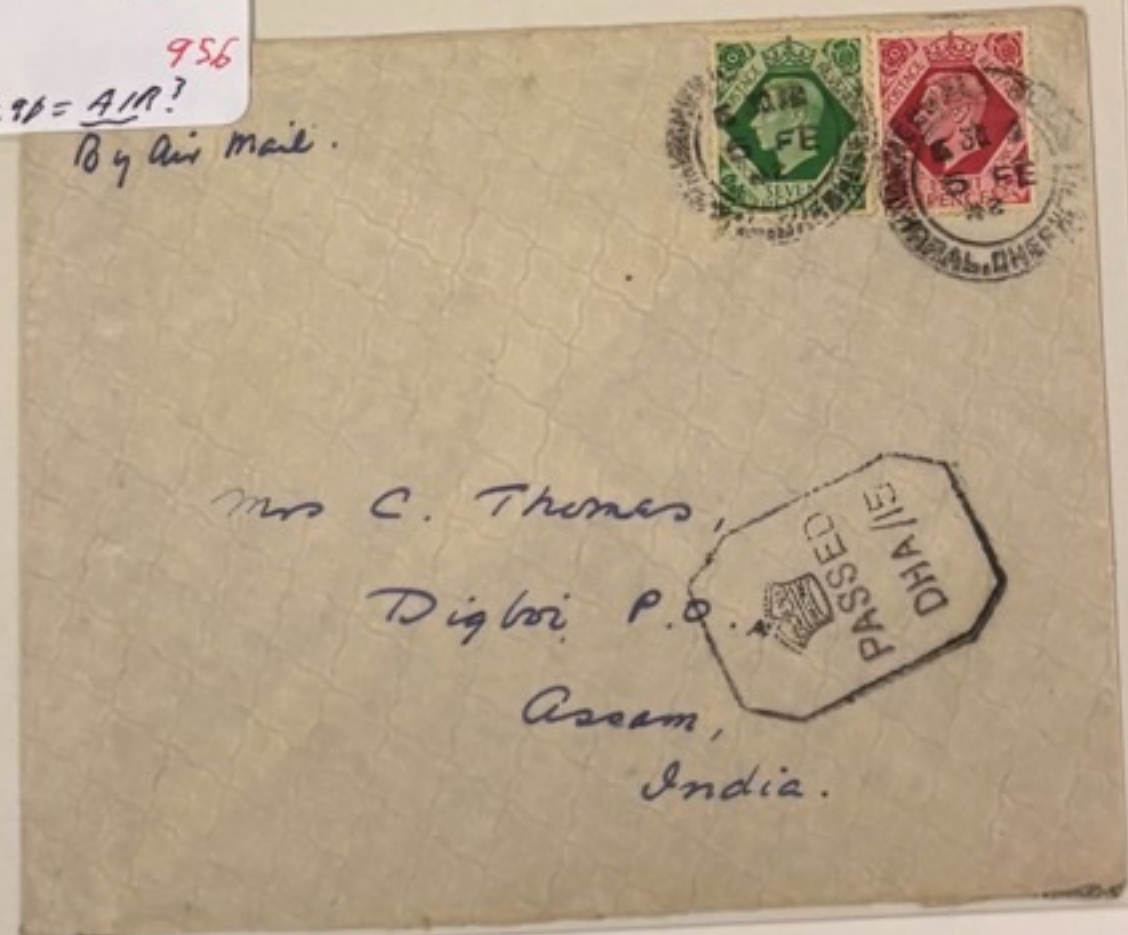 956
= AIR?
By Air Mail.
POSTAGE
SEVEN PENCE
5 FE
POSTAGE
EIGHT PENCE
5 FE
Mrs C. Thomas,
Digboi P.O.
Assam,
India.
PASSED
DHA/15